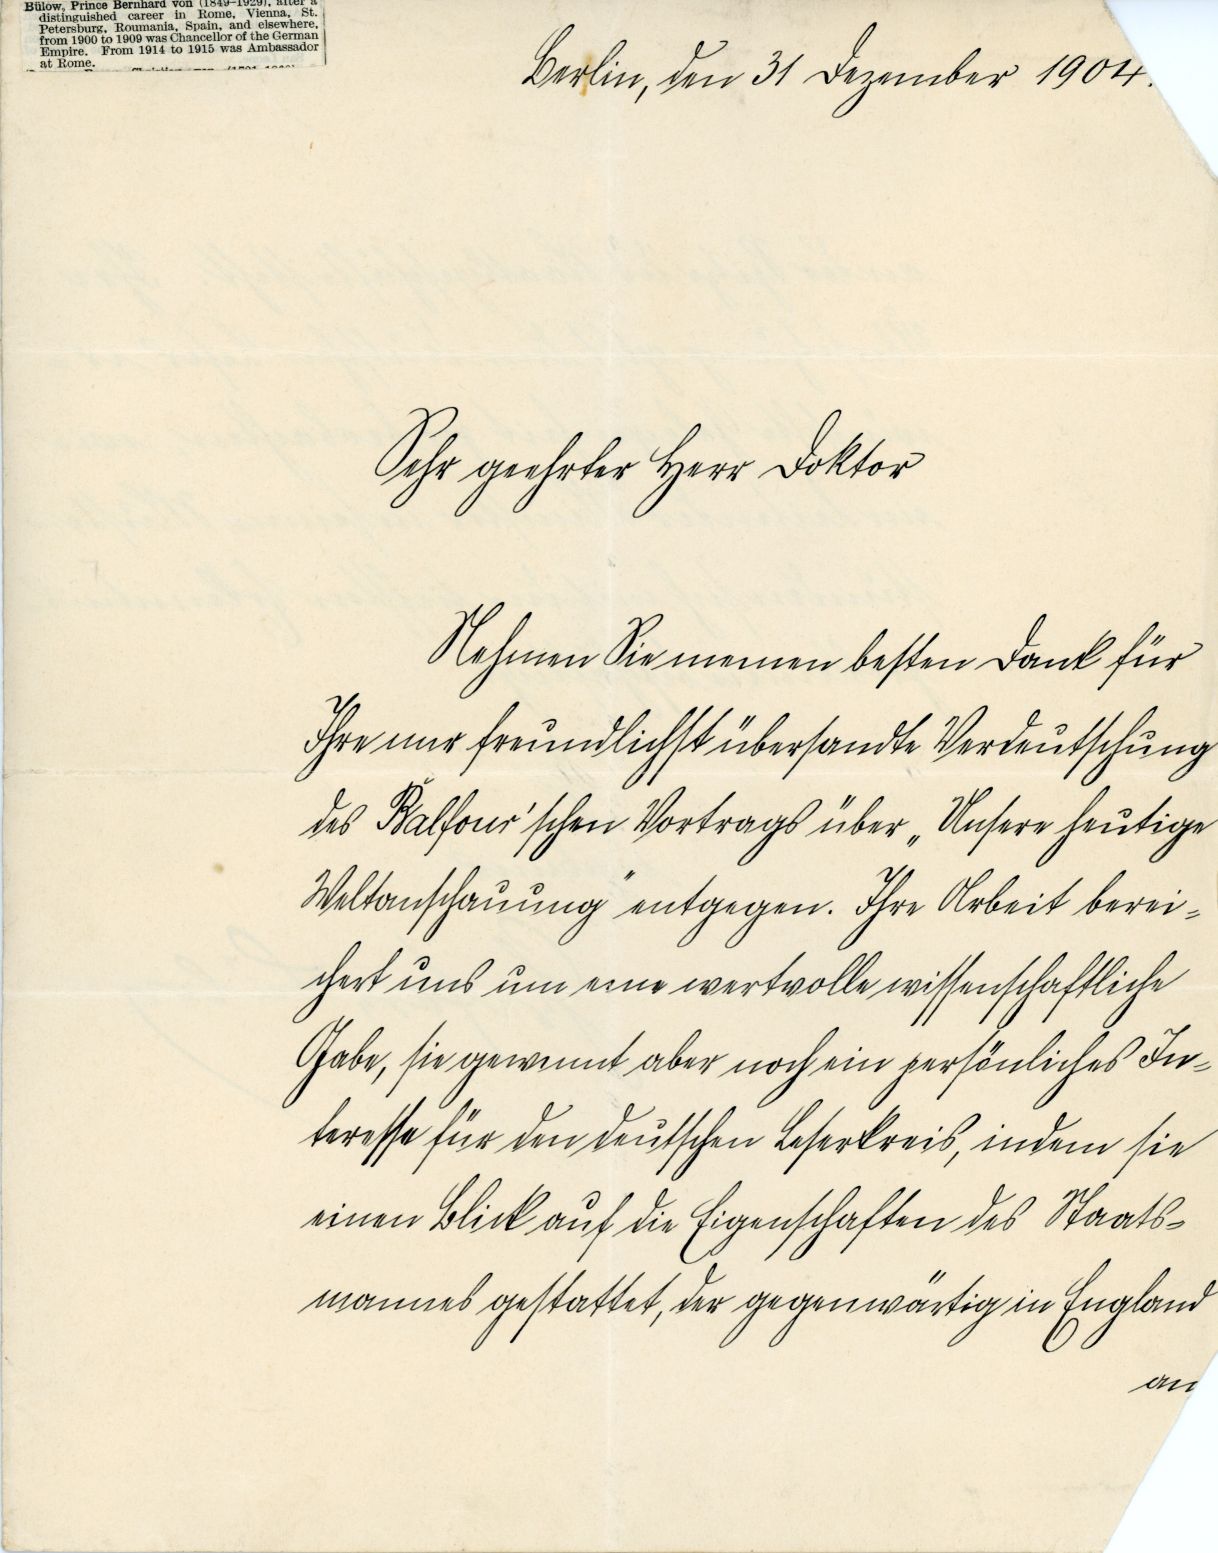 Bülow, Prince Bernhard von (1849–1929), after a
distinguished career in Rome, Vienna, St.
Petersburg, Roumania, Spain, and elsewhere,
from 1900 to 1909 was Chancellor of the German
Empire. From 1914 to 1915 was Ambassador
at Rome.
Berlin, den 31 Dezember 1904.
Sehr geehrter Herr Doktor
Nehmen Sie meinen besten Dank für
Ihre mir freundlichst übersandte Verdeutschung
des Balfour'schen Vortrags über „Unsere heutige
Weltanschauung" entgegen. Ihre Arbeit berei-
chert uns um eine wertvolle wissenschaftliche
Gabe, sie gewinnt aber noch ein persönliches In-
teresse für den deutschen Leserkreis, indem sie
einen Blick auf die Eigenschaften des Staats-
mannes gestattet, der gegenwärtig in England
an